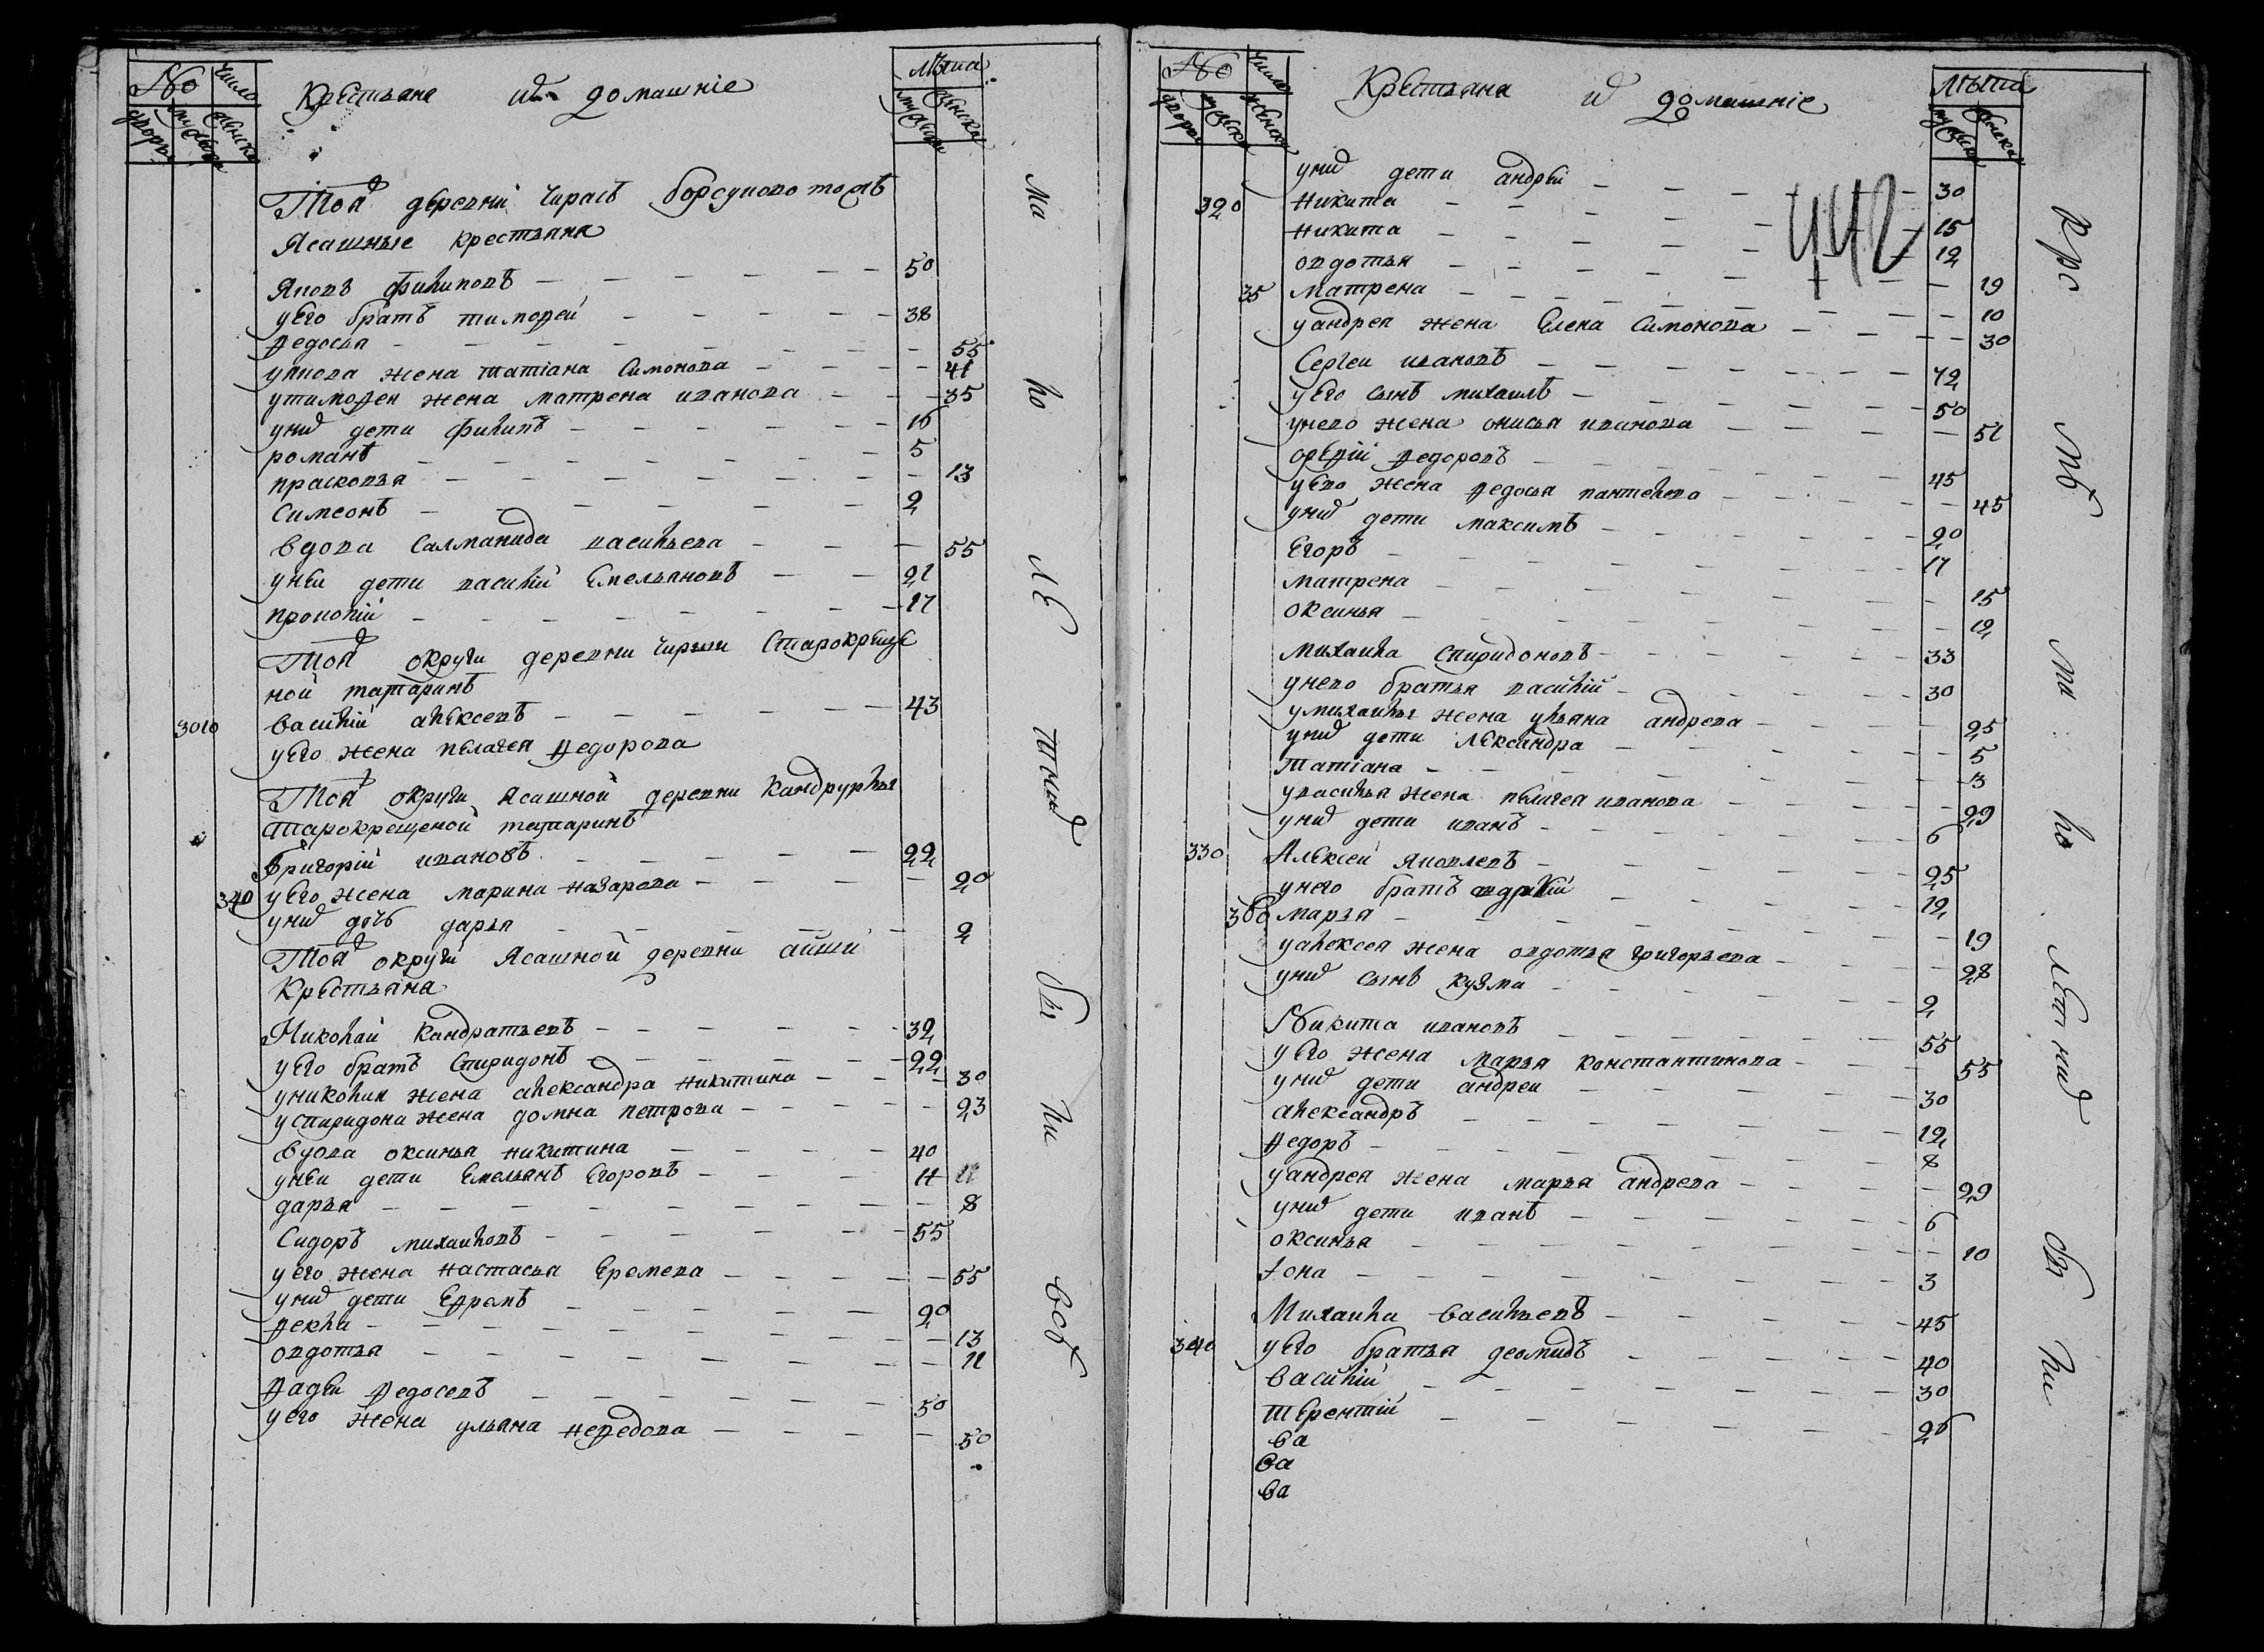 № Число Крестьяне и их домашніе Лѣта
дворовъ мужска женска мужска женска
Той деревни Чирасъ борсуково тожъ
Ясашные крестьяне
Яковъ филиповъ 50
у его братъ тимофей 38
федосья 55
у якова жена татіана Симонова 41
у тимофея жена матрена иванова 35
у них дети филипъ 16
романъ 5
прасковья 13
Симеонъ 2
вдова Салманида васильева 55
у неи дети василій Емельяновъ 21
прокопій 17
Той округи деревни Старокреще
ной татаринъ
3010 василій алексеевъ 43
у его жена пелагея федорова
Той округи Ясашной деревни
старокрещеной татаринъ
Григорій ивановъ 22
340 у его жена марина назарова 20
у них дочь дарья 2
Той округи Ясашной деревни айши
Крестьяне
Николай Кондратьевъ 32
у его братъ Спиридонъ 22
у николая жена александра никитина 30
у спиридона жена домна петрова 23
вдова оксинья никитина 40
у неи дети Емельянъ Егоровъ 11
дарья 8
Сидоръ михаиловъ 55
у его жена настасья Еремева 55
у них дети Ефремъ 20
фекла 13
овдотья 11
фадеи федосеевъ 50
у его жена ульяна нефедова 50
ма ло ле тных бы ли всѣ
№ Число Крестьяне и их домашніе Лѣта
дворовъ мужска женска мужска женска
442
у них дети андрѣй 30
320 никита 15
никита 12
овдотья 19
35 матрена 10
у андрея жена Елена Симонова 30
Сергеи ивановъ 72
у его сынъ михаилъ 50
у нево жена онисья иванова 51
федоровъ 45
у ево жена федосья пантелева 45
у них дети максимъ 20
Егоръ 17
матрена 15
оксинья 12
михаила спиридоновъ 33
у нево братья василій 30
у михаилы жена ульяна андрева 25
у них дети лександра 5
татіана 3
у василья жена пелагея иванова 29
у них дети иванъ 6
330 Алексеи яковлевъ 25
у него братъ 12
360 марья 19
у алексея жена овдотья григорьева 28
у них сынъ кузма 2
Никита ивановъ 55
у его жена марья константинова 55
у них дети андреи 30
александръ 12
федоръ 8
у андрея жена марья андрева 29
у них дети иванъ 6
оксинья 10
іона 3
Михаила васильевъ 45
340 у его братья деомидъ 40
василій 30
терентій 26
ва
ва
ва
ма ло летных бы ли